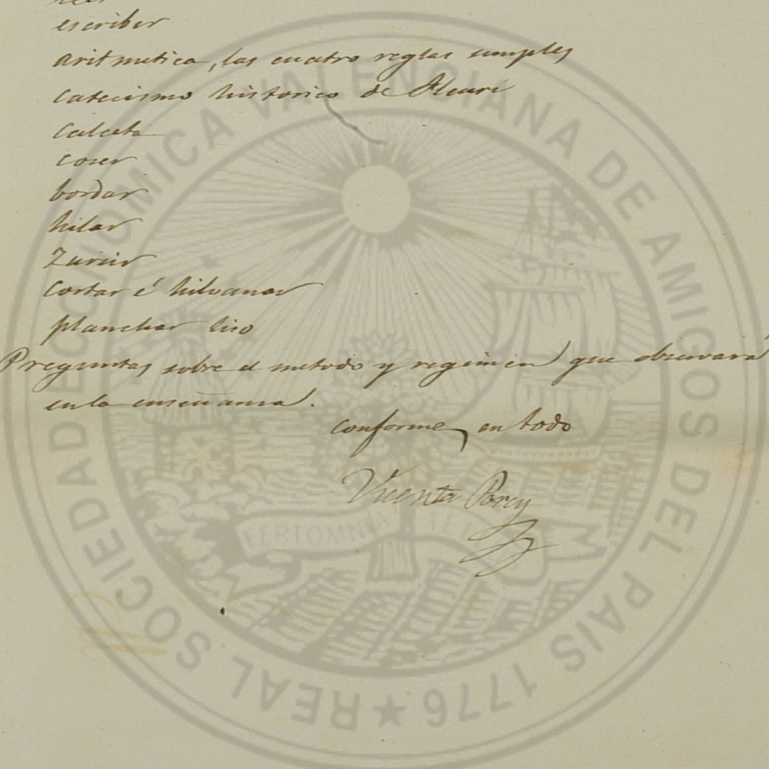 escriber
aritmetica, las cuatro reglas simples
catecismo historico de Fleuri
Calceta
coser
bordar
hilar
Zurcir
Cortar é hilvanar
planchar liso
Preguntas sobre el metodo y regimen que observará
en la enseñanza.
conforme en todo
Vicenta
REAL SOCIEDAD ECONOMICA VALENCIANA DE AMIGOS DEL PAIS 1776 ★
FERT OMNIA